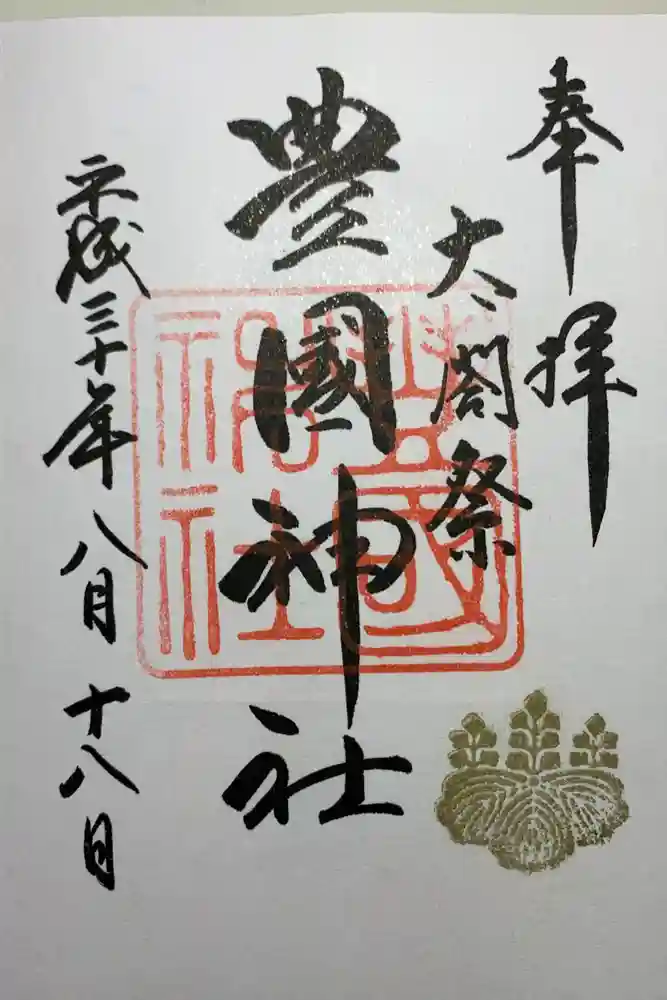 奉拝
太閤祭
豊國神社
平成三十年八月十八日
豊國神社